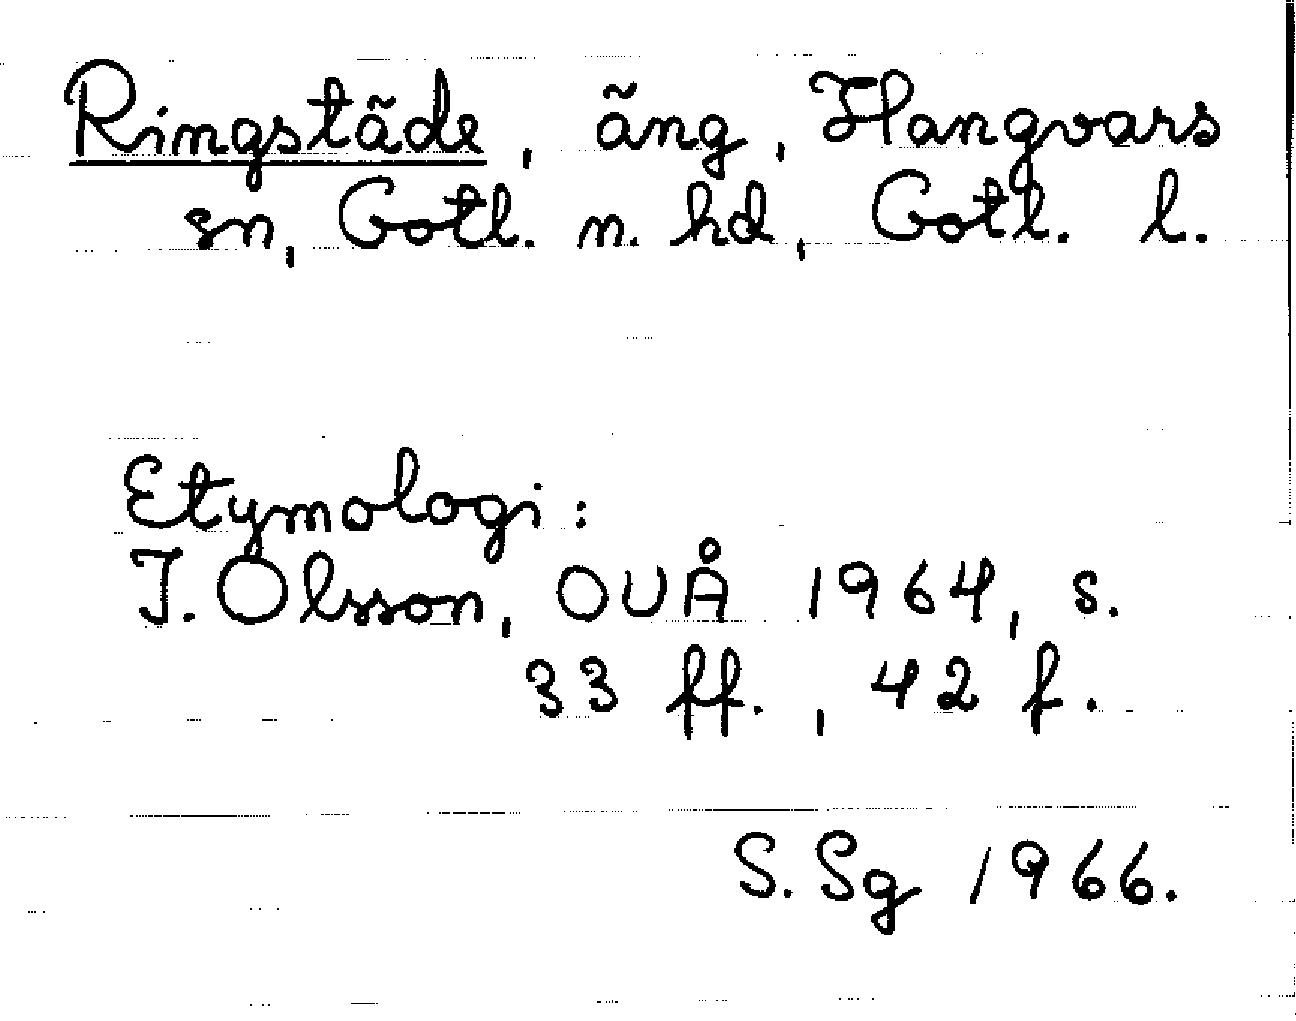 Ringstäde, äng, Hangvars
sn, Gotl. n. hd, Gotl. l.
Etymologi:
I. Olsson, OUÅ 1964, s.
33 ff., 42 f.
S. Sg 1966.